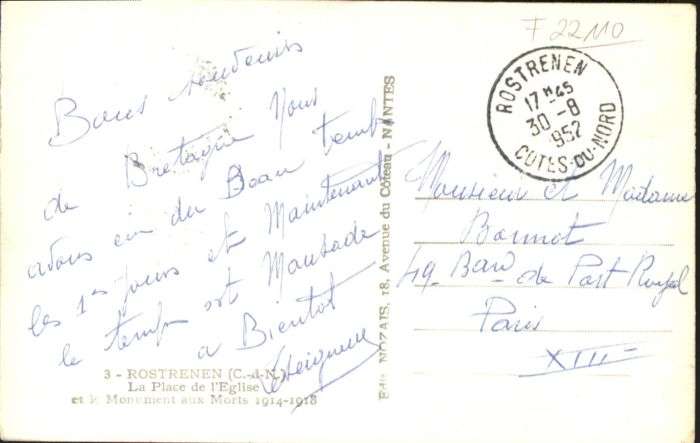 F 22110
ROSTRENEN
17 H 45
30-8
1952
COTES-DU-NORD
Bons souvenirs
de Bretagne Nous
avons eu du Beau temps
les 1ers jours et Maintenant
le temps est Maussade
a Bientot
Monsieur et Madame
49 Bard de Port Royal
Paris
XIII
Edit. NOZAIS, 18, Avenue du Côteau - NANTES
3 - ROSTRENEN (C.-d-N.)
La Place de l'Eglise
et le Monument aux Morts 1914-1918